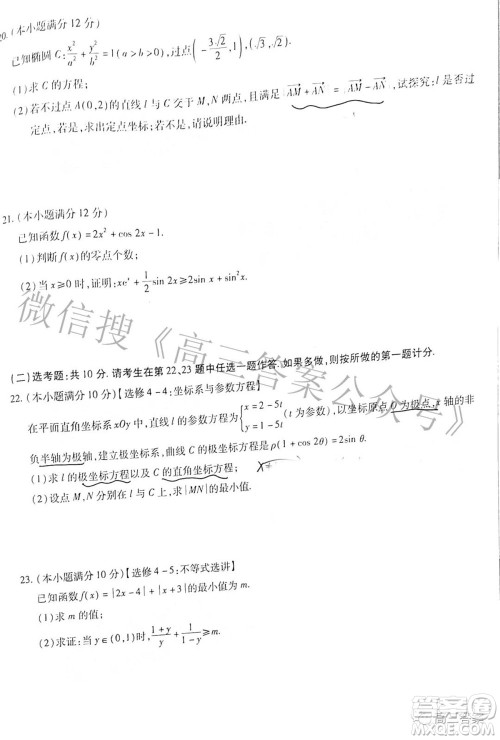 20. (本小题满分 12 分)
已知椭圆 C: x²/a² + y²/b² = 1(a>b>0),过点(-3√2/2,1),(√3,√2).
(1)求 C 的方程;
(2)若不过点 A(0,2)的直线 l 与 C 交于 M,N 两点,且满足 |AM+AN| = |AM-AN|,试探究:l 是否过
定点,若是,求出定点坐标;若不是,请说明理由.
21. (本小题满分 12 分)
已知函数 f(x)=2x²+cos x-1.
(1)判断 f(x)的零点个数;
(2)当 x≥0 时,证明:xeˣ+1/2 sin 2x≥2sin x-sin x
(二)选考题:共 10 分. 请考生在第 22,23 题中任选一题作答. 如果多做,则按所做的第一题计分.
22. (本小题满分 10 分)【选修 4-4:坐标系与参数方程】
在平面直角坐标系 xOy 中,直线 l 的参数方程为{x=2-5t y=1-5t (t 为参数),以坐标原点 O 为极点,x 轴的非
负半轴为极轴,建立极坐标系,曲线 C 的极坐标方程是 ρ(1+cos 2θ)=2sin θ.
(1)求 l 的极坐标方程以及 C 的直角坐标方程;
(2)设点 M,N 分别在 l 与 C 上,求 |MN| 的最小值.
23. (本小题满分 10 分)【选修 4-5:不等式选讲】
已知函数 f(x)=|2x-4|+|2x+5|的最小值为 m.
(1)求 m 的值;
(2)求证:当 y∈(0,1)时, (1+y)/y + 1/(1-y) ≥m.
微信搜《高三答案公众号》
高三答案
答案圈
MXQE.COM